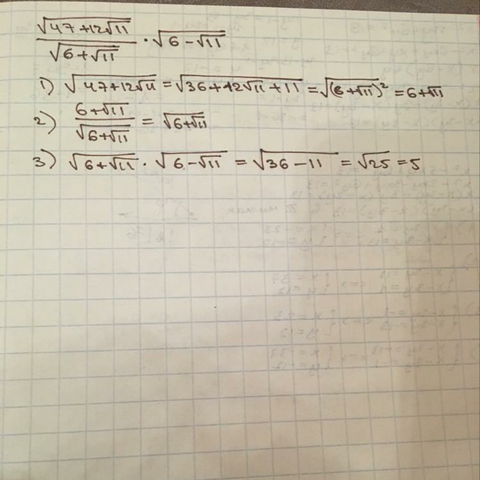 √(47+12√11) / √(6+√11) · √(6-√11)
1) √(47+12√11) = √(36+12√11+11) = √((6+√11)²) = 6+√11
2) (6+√11) / √(6+√11) = √(6+√11)
3) √(6+√11) · √(6-√11) = √(36-11) = √25 = 5